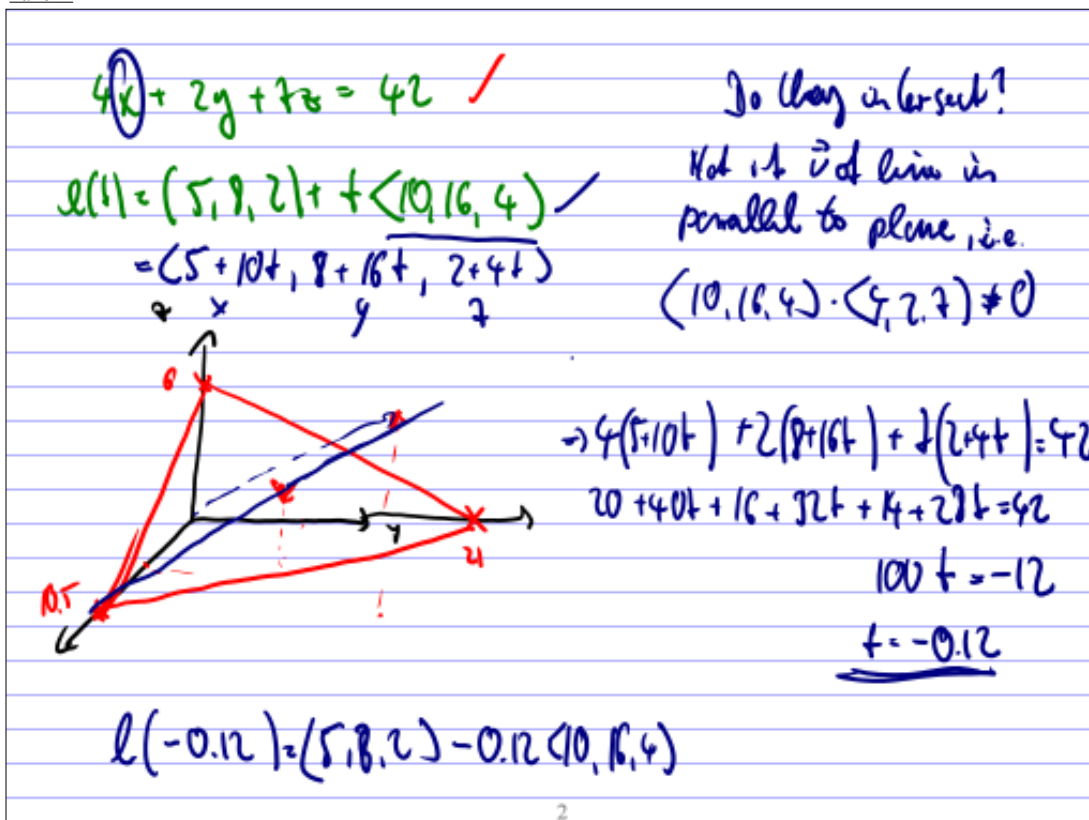 4x + 2y + 7z = 42
l(t) = (5, 8, 2) + t <10, 16, 4>
= (5 + 10t, 8 + 16t, 2 + 4t)
z x y z
6
y
21
10.5
!
Do they intersect?
Not if v⃗ of line is
parallel to plane, i.e.
<10, 16, 4> · <4, 2, 7> ≠ 0
⇒ 4(5+10t) + 2(8+16t) + 7(2+4t) = 42
20 + 40t + 16 + 32t + 14 + 28t = 42
100 t = -12
t = -0.12
l(-0.12) = (5, 8, 2) - 0.12 <10, 16, 4>
2